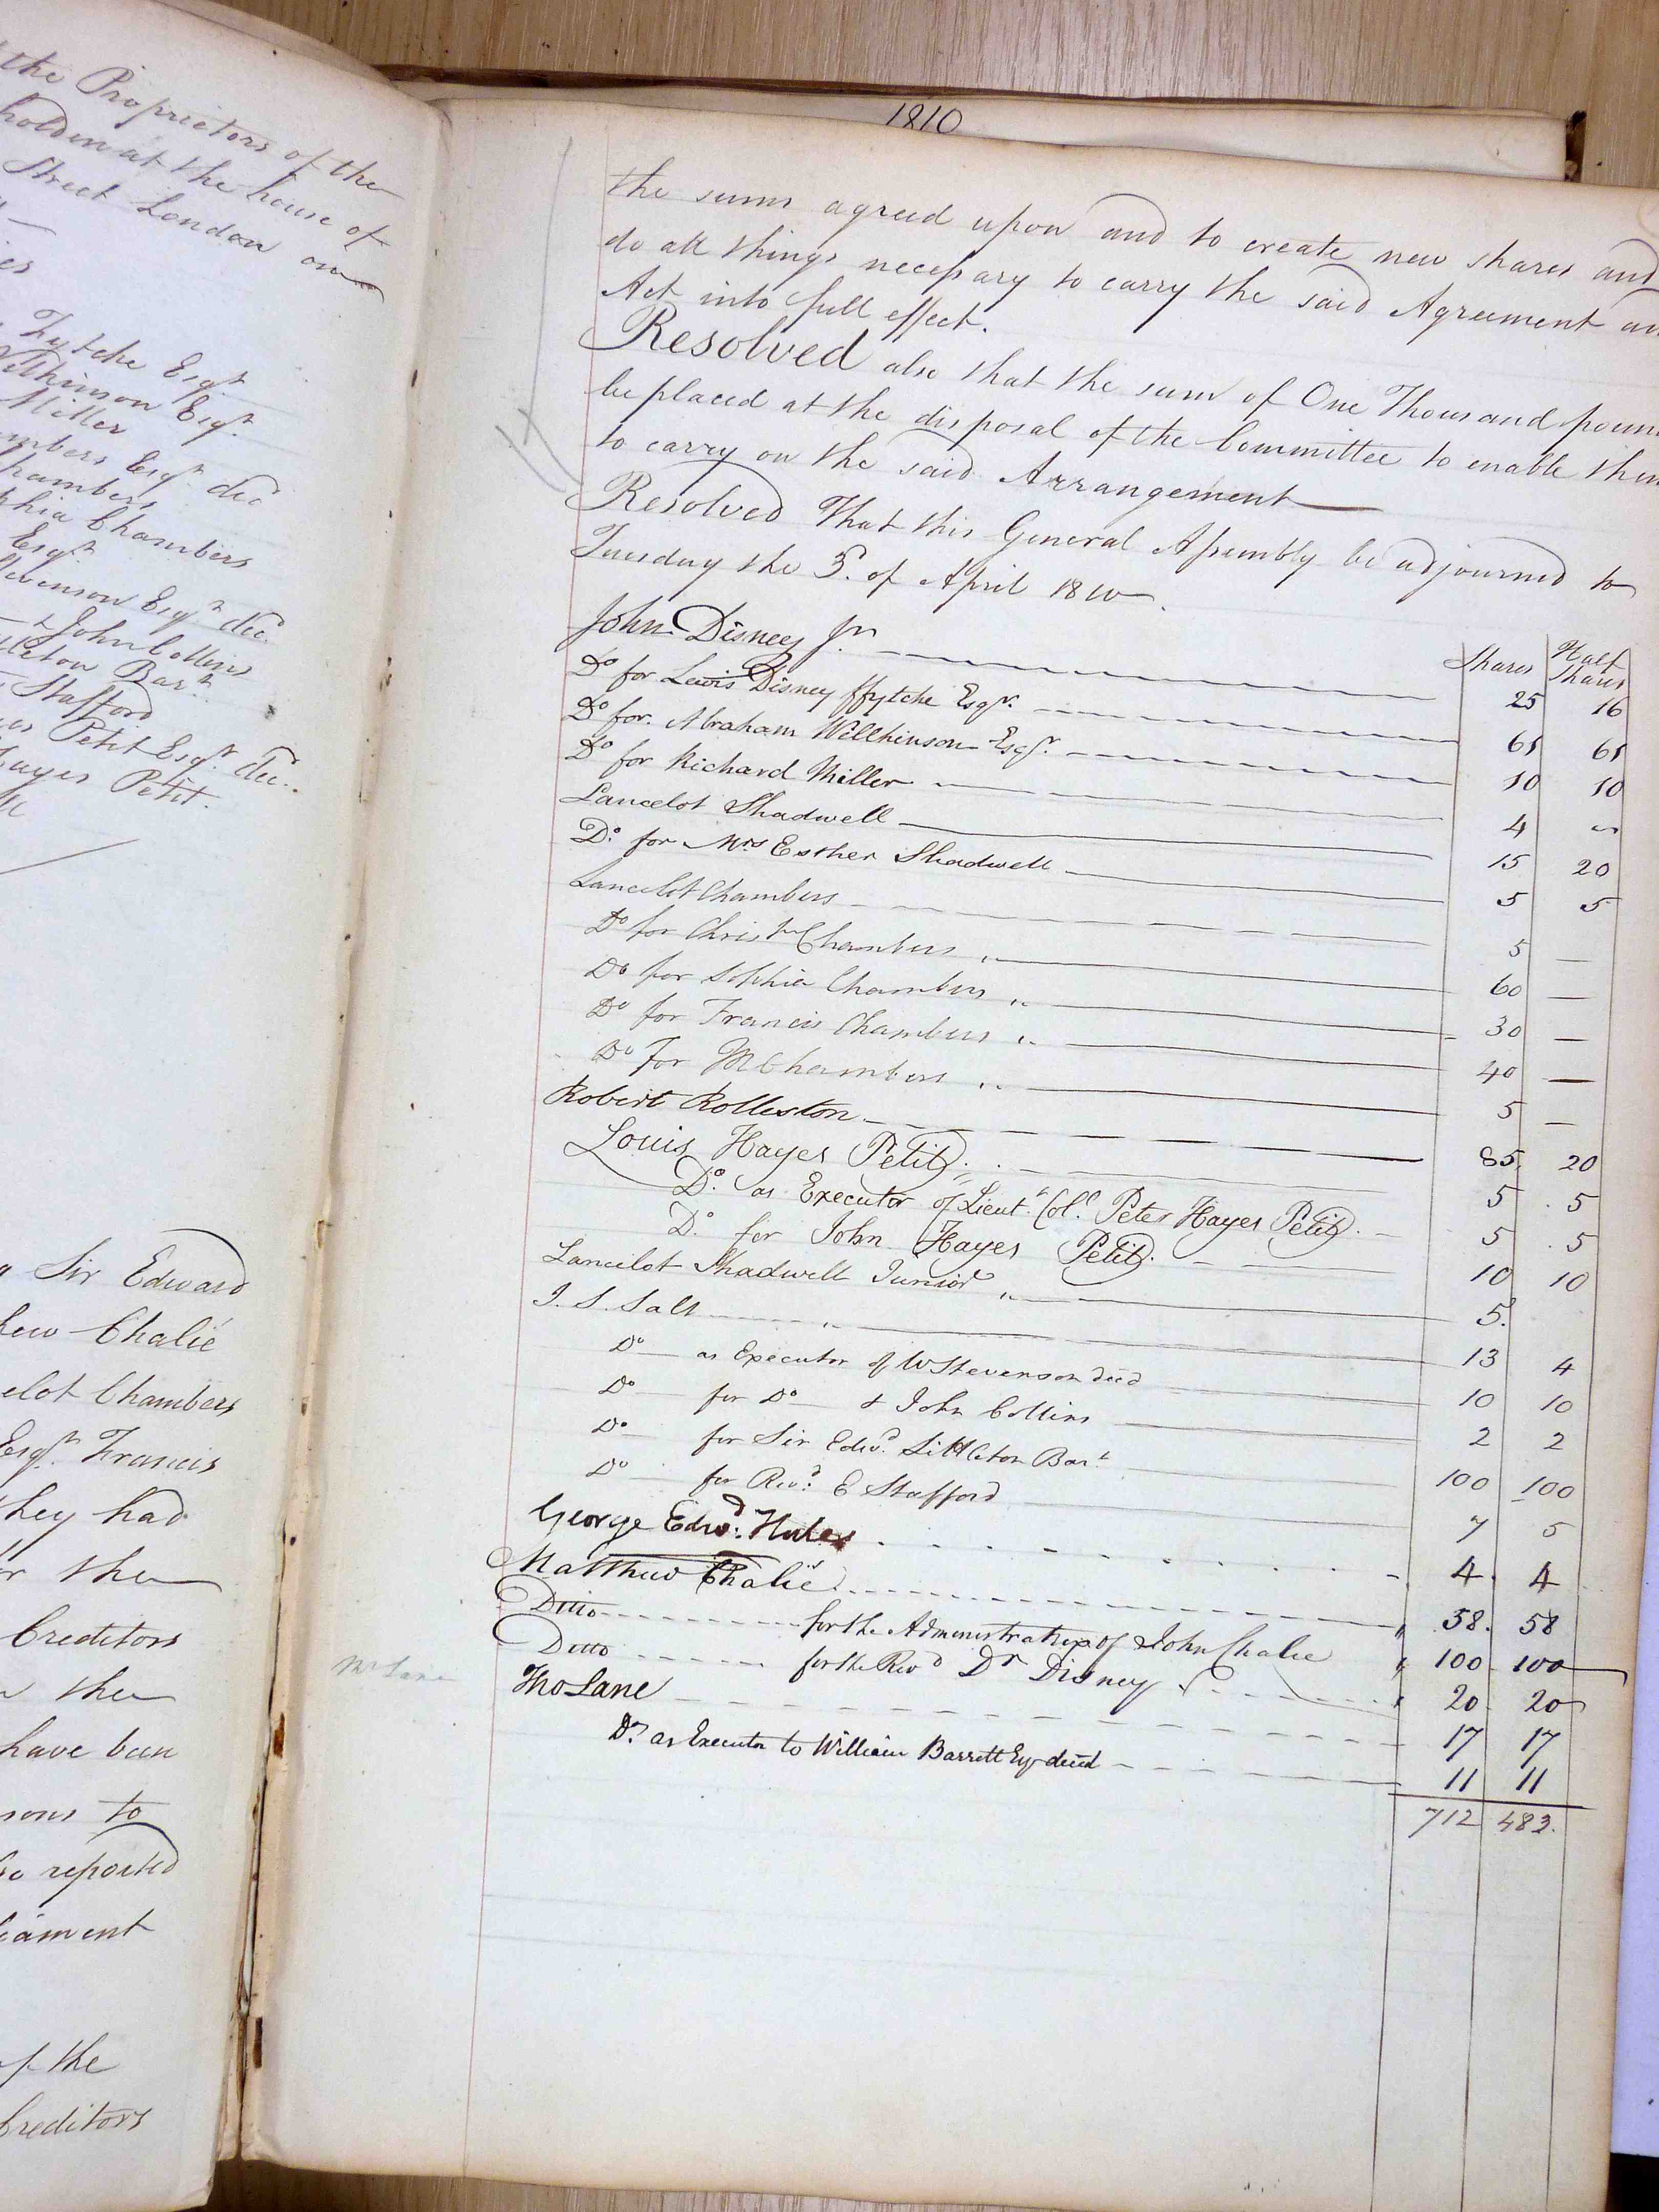 the Proprietors of the
holden at the house of
Street London on
Fytche Esqr.
Wilkinson Esqr.
Miller
Chambers Esqr. dec
Chambers
Sophia Chambers
Esqr.
Stevenson Esqr. dec.
& John Collins
Littleton Bart.
Stafford
Petit Esqr. dec.
Hayes Petit.
Sir Edward
Chalié
Chambers
Esqr. Francis
they had
the
Creditors
then
have been
to
reported
of the
Creditors
1810
the sums agreed upon and to create new shares and
do all things necessary to carry the said Agreement
Act into full effect.
Resolved also that the sum of One Thousand
be placed at the disposal of the Committee to enable
to carry on the said Arrangement
Resolved That this General Assembly be adjourned to
Tuesday the 3. of April 1810.
Shares Half Shares
John Disney Jr. 25 16
Do for Lewis Disney ffytche Esqr. 61 61
Do for Abraham Wilkinson Esqr. 10 10
Do for Richard Miller 4 "
Lancelot Shadwell 15 20
Do. for Mrs Esther Shadwell 5 5
Lancelot Chambers 5 —
Do for Christr Chambers 60 —
Do for Sophia Chambers 30 —
Do for Francis Chambers 40 —
Do for M Chambers 5 —
Robert Rolleston 85 20
Louis Hayes Petit. 5 5
Do. as Executor of Lieut. Col. Peter Hayes Petit. 5 5
Do. for John Hayes Petit. 10 10
Lancelot Shadwell Junior 5.
J. S. Salt 13 4
Do as Executor of W Stevenson decd 10 10
Do for Do & John Collins 2 2
Do for Sir Edwd. Littleton Bart 100 100
Do for Revd. E Stafford 7 5
George Edwd. Hales 4 4
Matthew Chalié 58. 58
Ditto for the Administratrix of John Chalie 100 100
Ditto for the Revd Dr Disney 20 20
Mr Lane
Tho Lane 17 17
Do. as Executor to William Barrett Esqr decd 11 11
712 483.